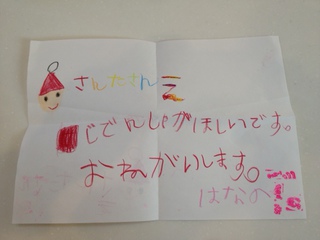 さんたさんえ
じてんしゃがほしいです。
おねがいします。
はなの